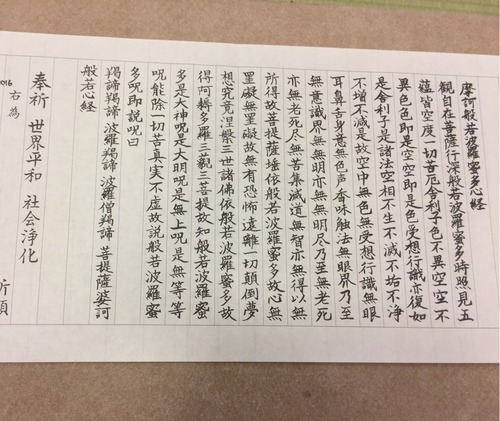 摩訶般若波羅蜜多心経
觀自在菩薩行深般若波羅蜜多時照見五
蘊皆空度一切苦厄舎利子色不異空空不
異色色即是空空即是色受想行識亦復如
是舎利子是諸法空相不生不滅不垢不浄
不増不減是故空中無色無受想行識無眼
耳鼻舌身意無色声香味触法無眼界乃至
無意識界無無明亦無無明尽乃至無老死
亦無老死尽無苦集滅道無智亦無得以無
所得故菩提薩埵依般若波羅蜜多故心無
罣礙無罣礙故無有恐怖遠離一切顛倒夢
想究竟涅槃三世諸佛依般若波羅蜜多故
得阿耨多羅三藐三菩提故知般若波羅蜜
多是大神呪是大明呪是無上呪是無等等
呪能除一切苦真実不虚故説般若波羅蜜
多呪即説呪曰
羯諦羯諦 波羅羯諦 波羅僧羯諦 菩提薩婆訶
般若心経
奉祈 世界平和 社会浄化
右為 祈願
2016